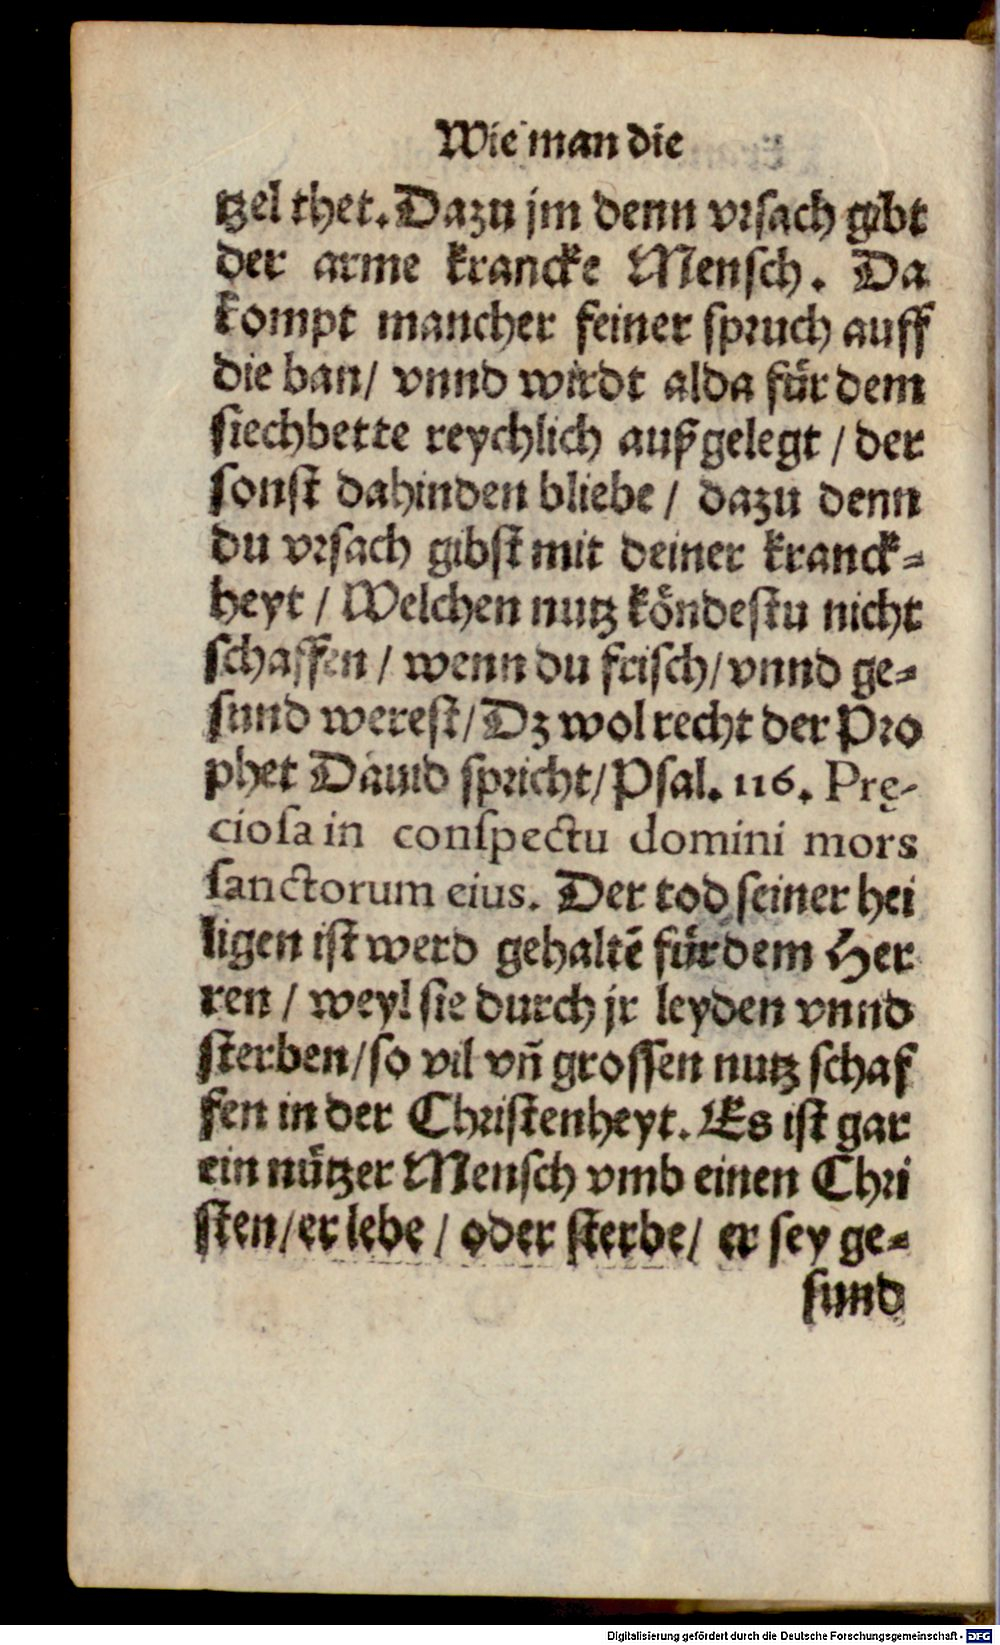 Wie man die
tzel thet. Dazu jm denn vrsach gibt
der arme krancke Mensch. Da
kompt mancher feiner spruch auff
die ban/ vnnd wirdt alda für dem
siechbette reychlich außgelegt / der
sonst dahinden bliebe / dazu denn
du vrsach gibst mit deiner kranck-
heyt / Welchen nutz köndestu nicht
schaffen / wenn du frisch/ vnnd ge-
sund werest/ Dz wol recht der Pro
phet Dauid spricht/ Psal. 116. Prę-
ciosa in conspectu domini mors
sanctorum eius. Der tod seiner hei
ligen ist werd gehaltē für dem Her
ren / weyl sie durch jr leyden vnnd
sterben/ so vil vñ grossen nutz schaf
fen in der Christenheyt. Es ist gar
ein nützer Mensch vmb einen Chri
sten/ er lebe / oder sterbe/ er sey ge-
sund
Digitalisierung gefördert durch die Deutsche Forschungsgemeinschaft - DFG